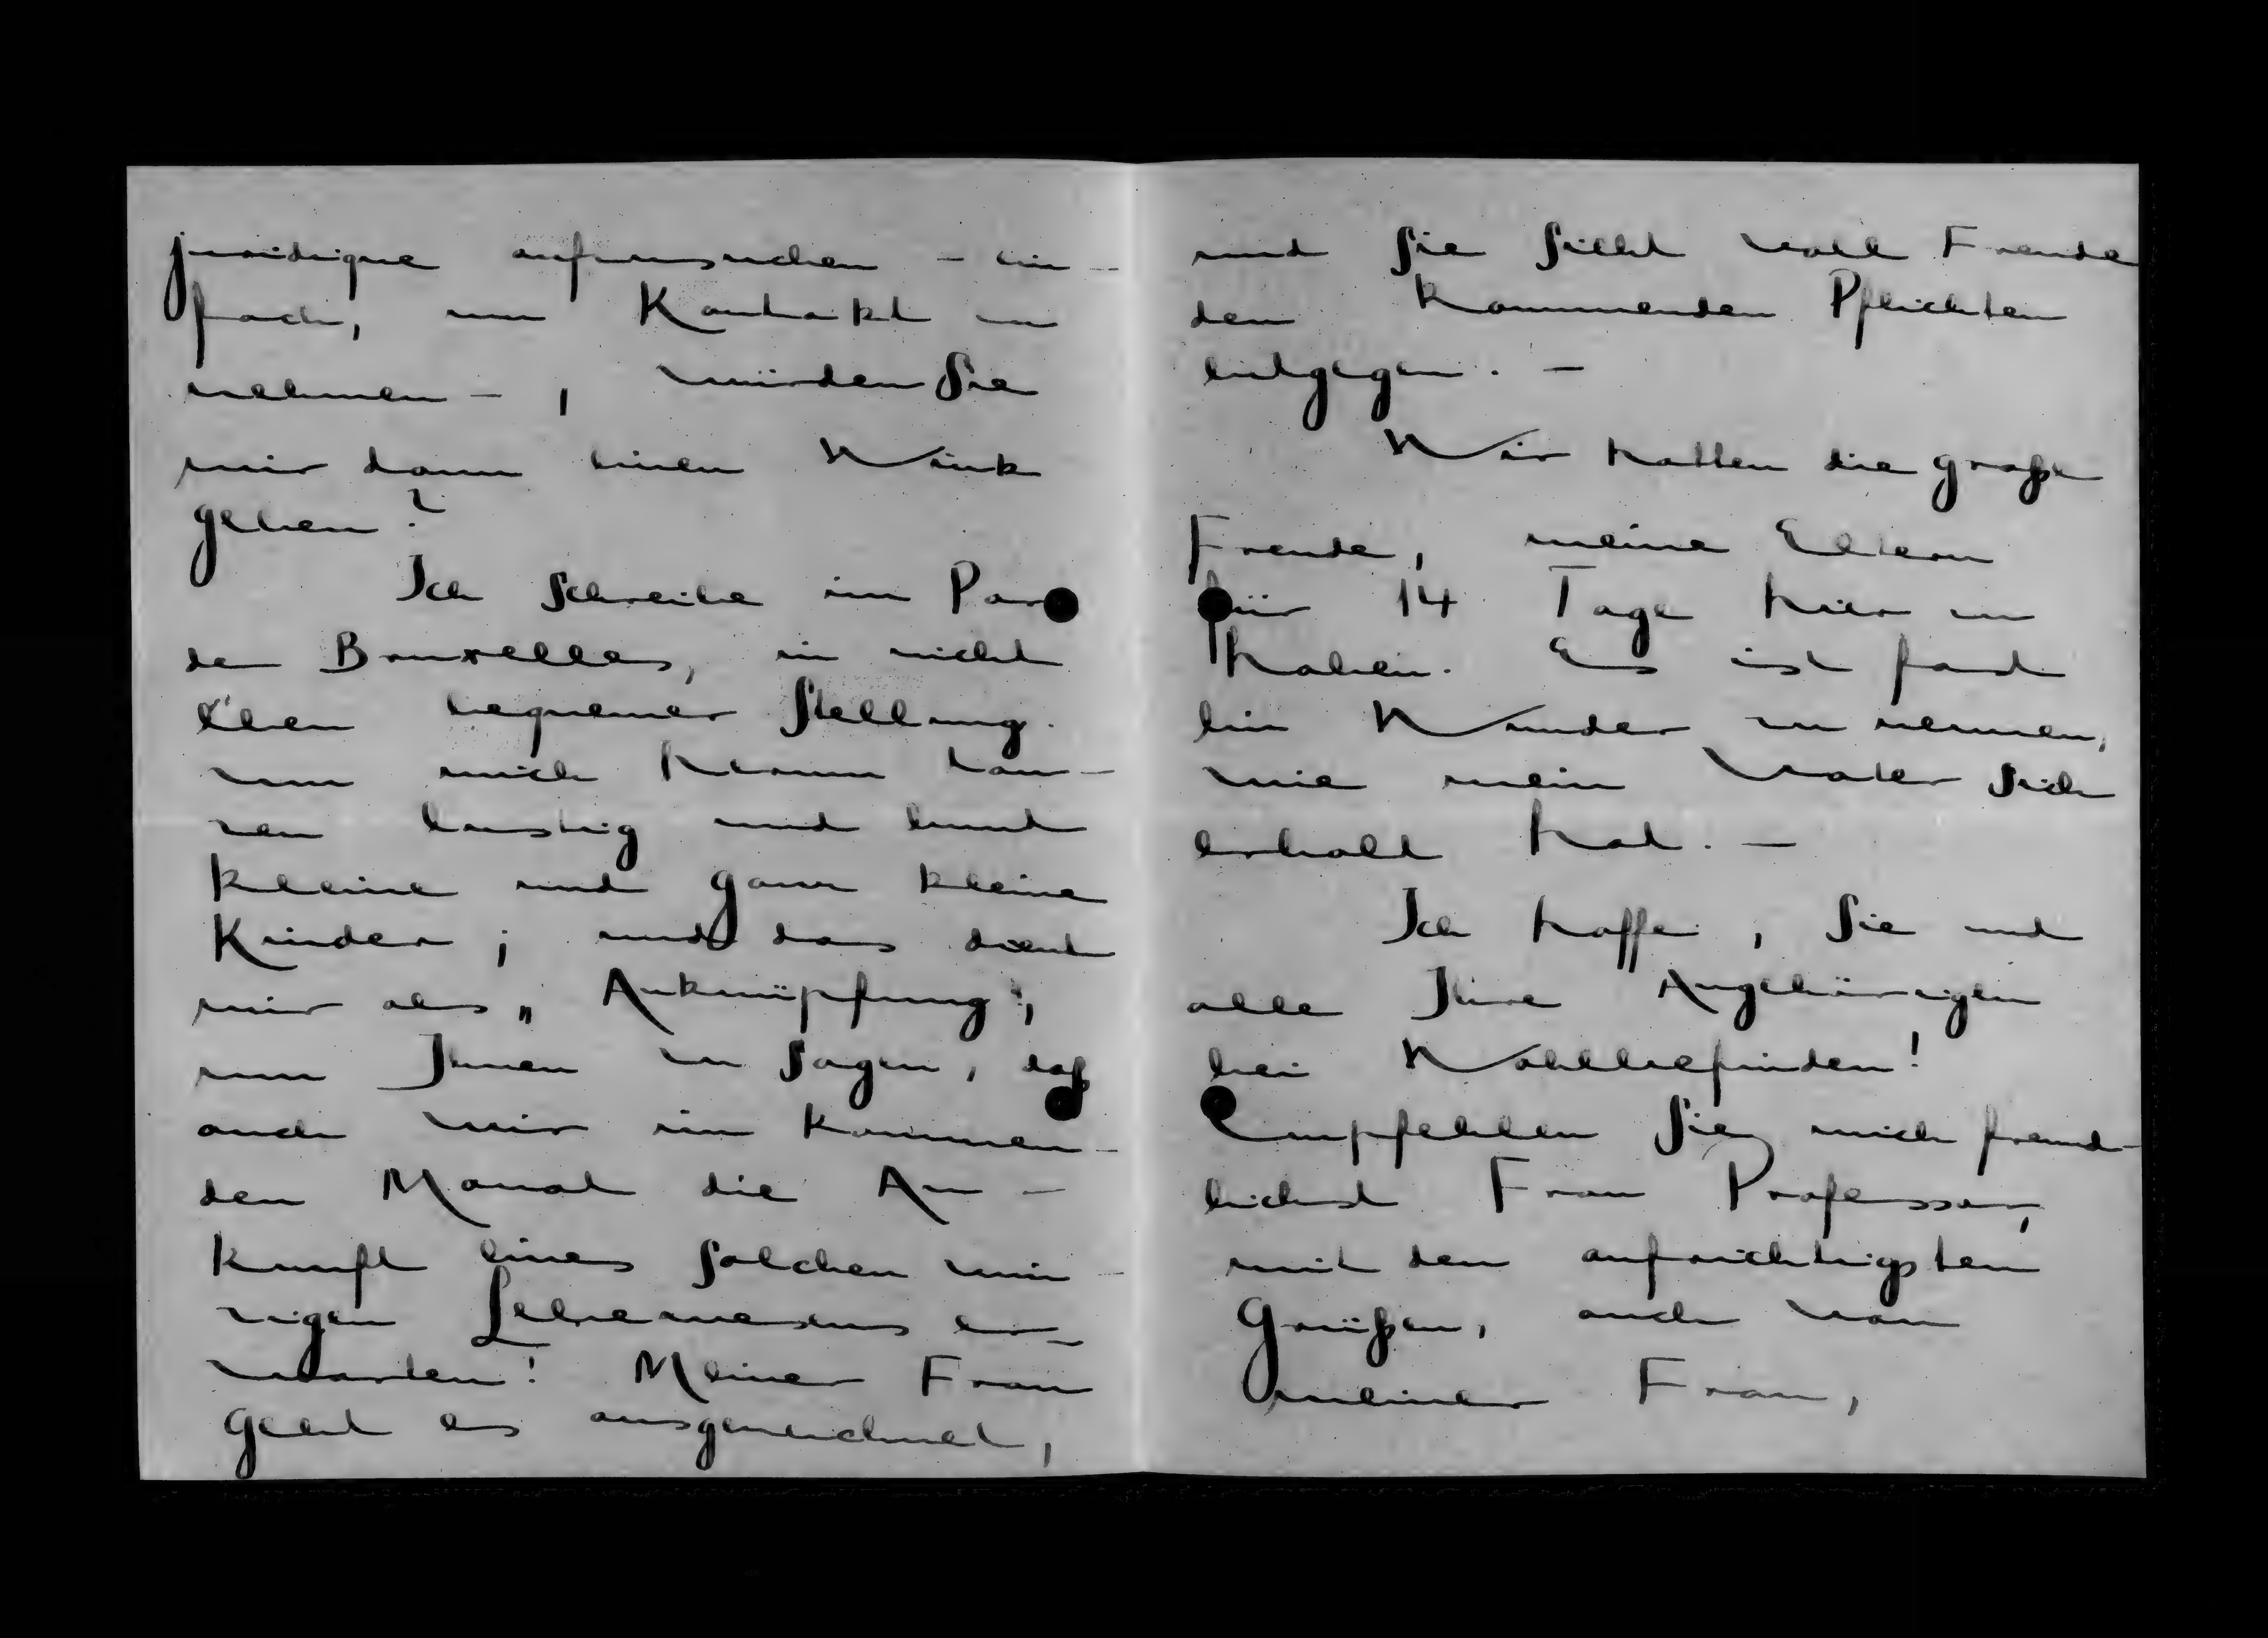 juridique aufzusuchen – ein-
fach, um Kontakt zu
nehmen – , würden Sie
mir dann einen Wink
geben?
Ich schreibe im Parc
de Bruxelles, in nicht
eben bequemer Stellung.
um mich herum tan-
zen lustig und bunt
kleine und ganz kleine
Kinder; und das dient
mir als „Anknüpfung",
um Ihnen zu sagen, daß
auch wir im kommen-
den Monat die An-
kunft eines solchen win-
zigen Lebewesens er-
warten! Meiner Frau
geht es ausgezeichnet,
und sie sieht voll Freude
den kommenden Pflichten
entgegen. –
Wir hatten die große
Freude, meine Eltern
für 14 Tage hier zu
haben. Es ist fast
ein Wunder zu nennen,
wie mein Vater sich
erholt hat. –
Ich hoffe, Sie und
alle Ihre Angehörigen
bei Wohlbefinden!
Empfehlen Sie mich freund-
lichst Frau Professor,
mit den aufrichtigsten
Grüßen, auch von
meiner Frau,